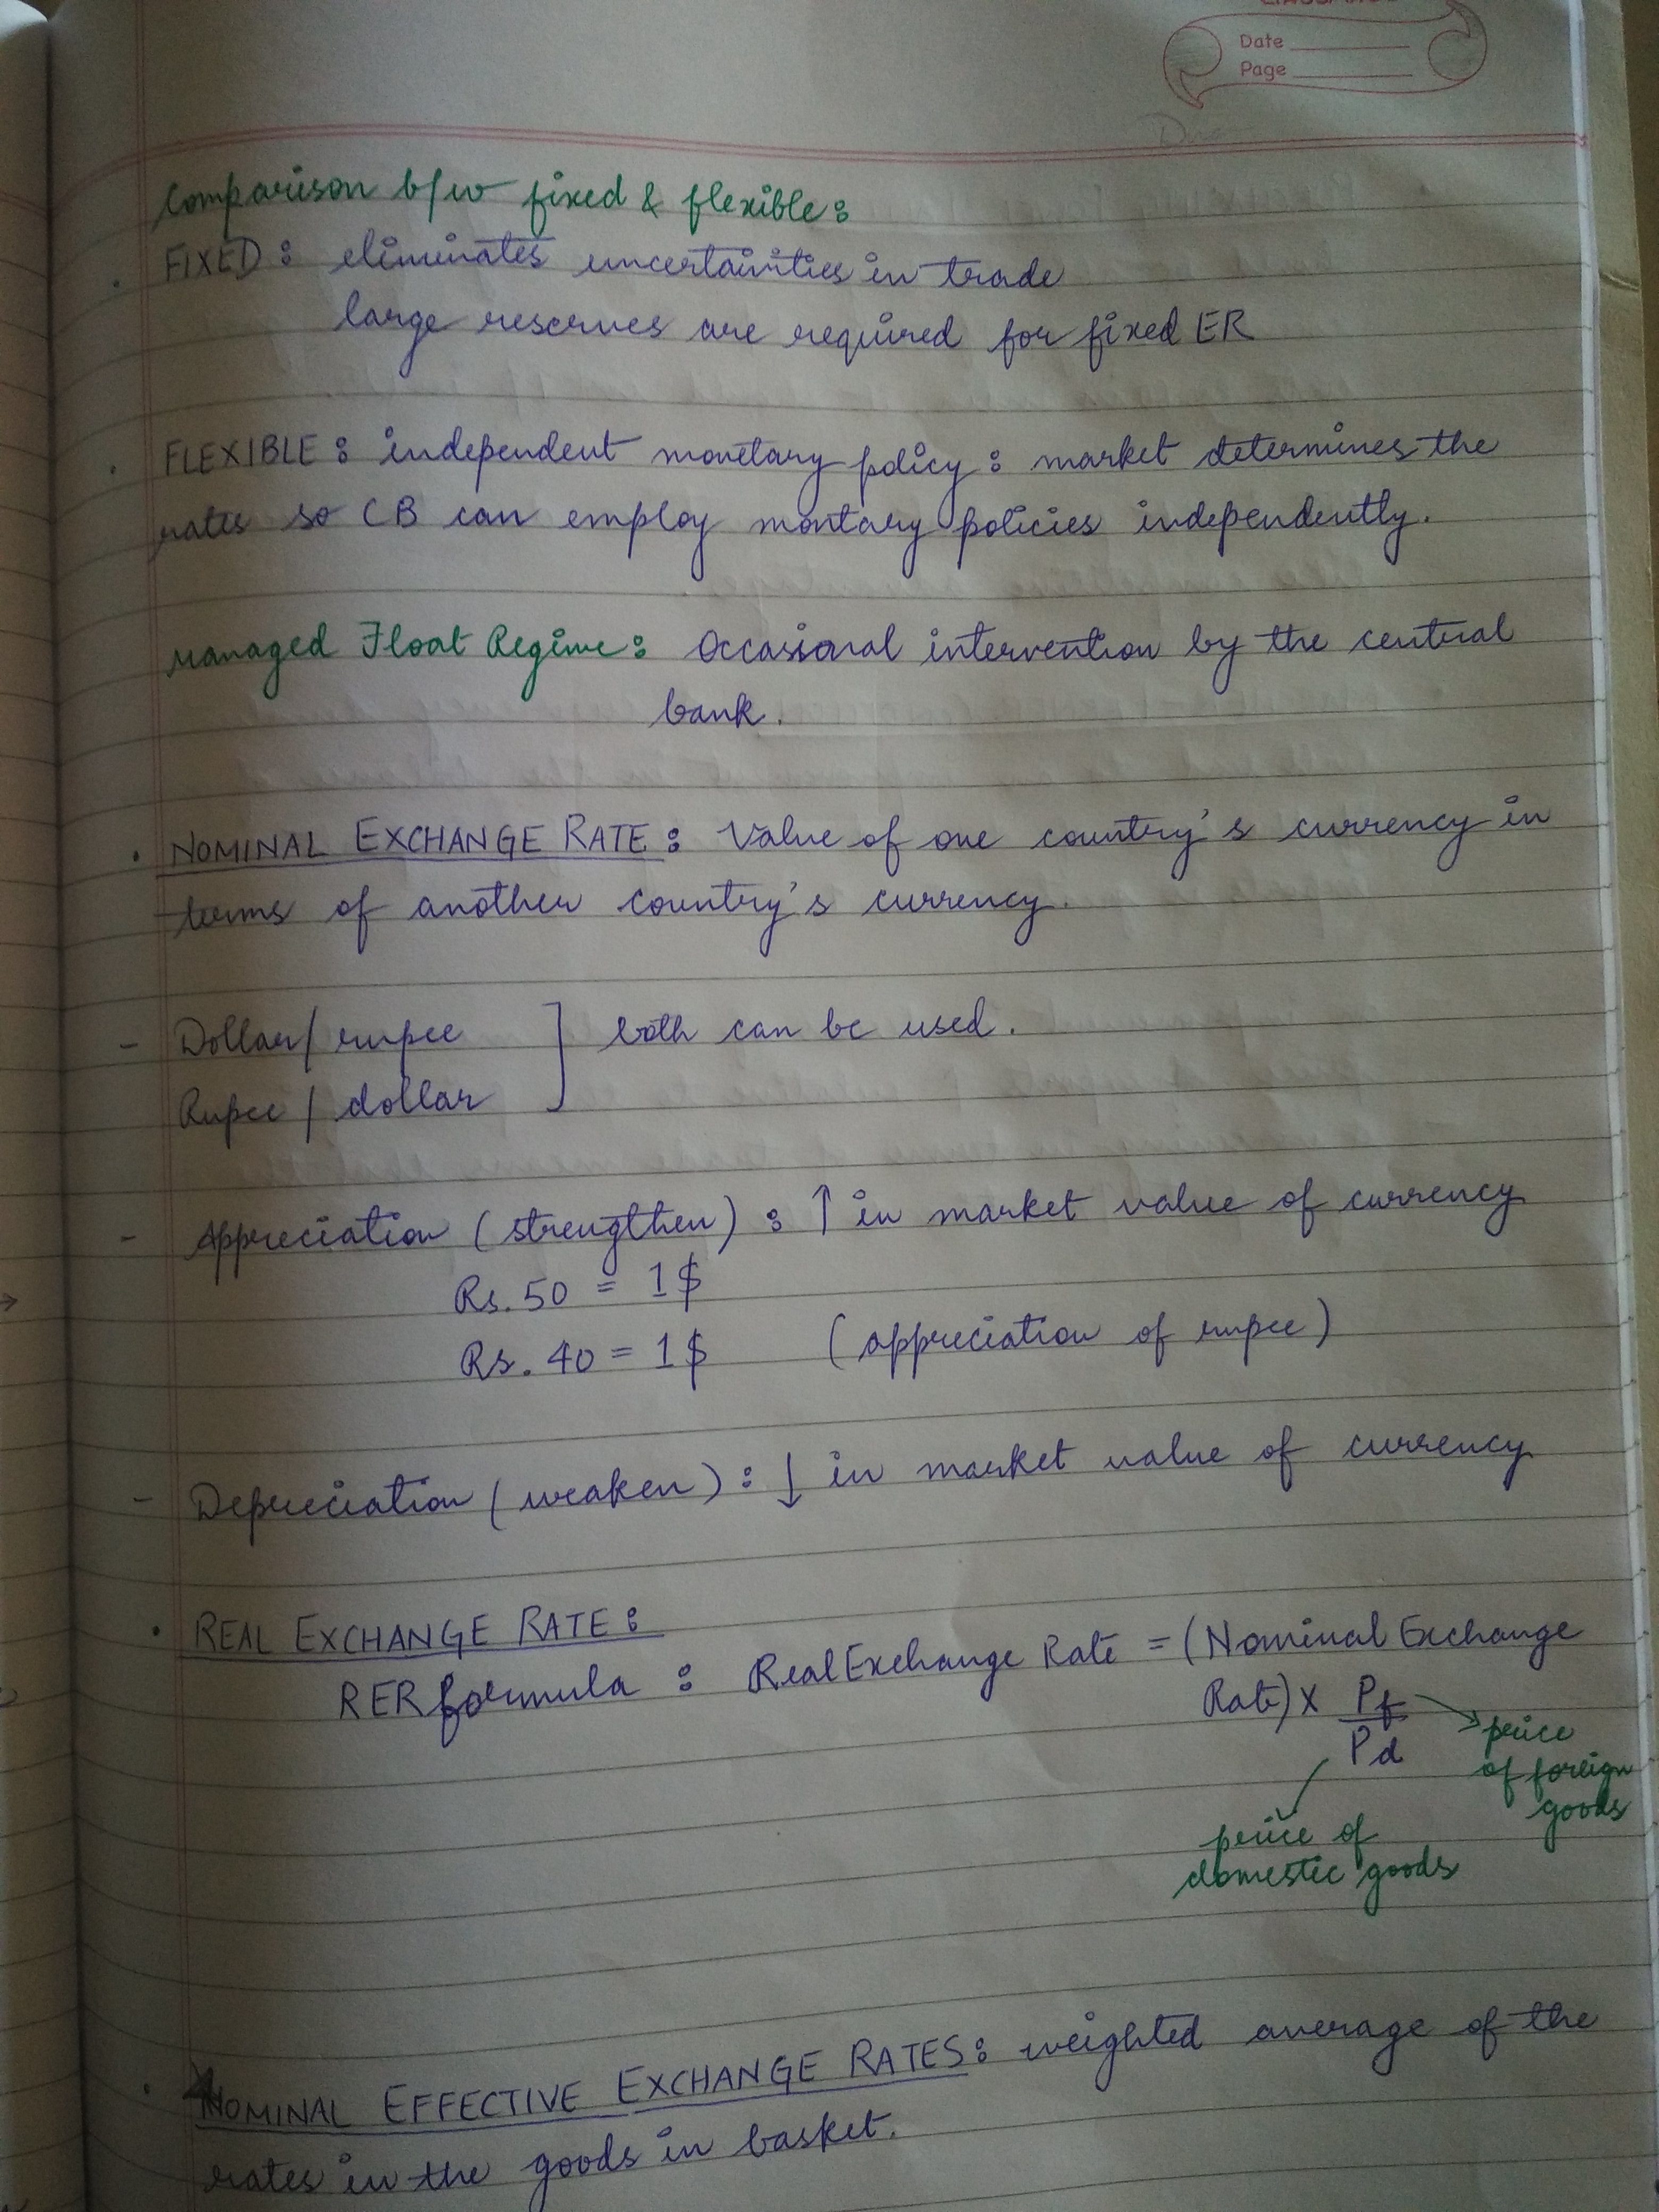 Date
Page
Comparison b/w fixed & flexible:
FIXED: eliminates uncertainities in trade
large reserves are required for fixed ER
FLEXIBLE: independent monetary policy: market determines the
rates so CB can employ montary policies independently.
Managed Float Regime: Occasional intervention by the central
bank.
NOMINAL EXCHANGE RATE: Value of one country's currency in
terms of another country's currency.
- Dollar/rupee ] both can be used.
Rupee/dollar
- Appreciation (strengthen): ↑ in market value of currency
Rs. 50 = 1$
Rs. 40 = 1$ (appreciation of rupee)
- Depreciation (weaken): ↓ in market value of currency
REAL EXCHANGE RATE:
RER formula: Real Exchange Rate = (Nominal Exchange
Rate) x Pf
Pd
price
of foreign
goods
price of
domestic goods
NOMINAL EFFECTIVE EXCHANGE RATES: weighted average of the
rates in the goods in basket.